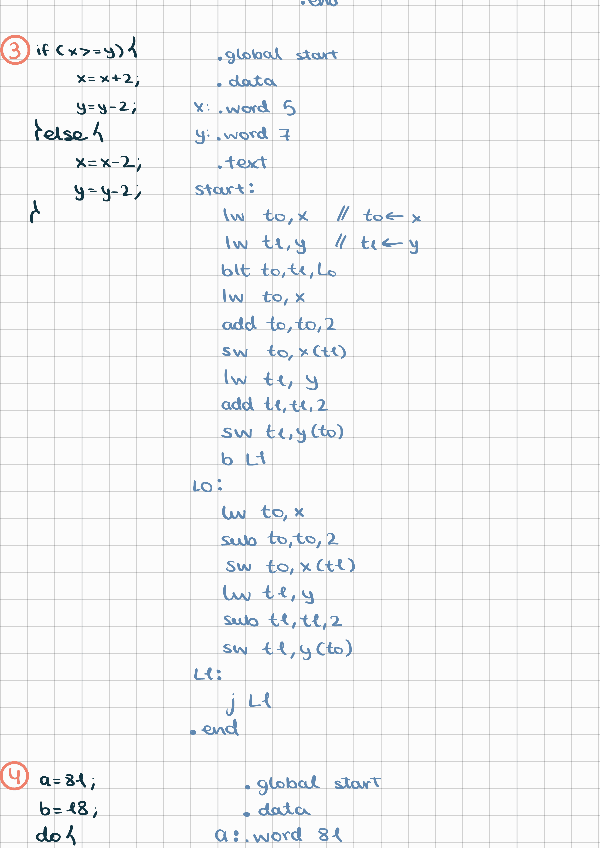 .end
3 if (x>=y){
x=x+2;
y=y-2;
}else{
x=x-2;
y=y-2;
}
.global start
.data
x: .word 5
y: .word 7
.text
start:
lw t0,x // t0← x
lw t1,y // t1← y
blt t0,t1,L0
lw t0,x
add t0,t0,2
sw t0,x(t1)
lw t1, y
add t1,t1,2
sw t1,y(t0)
b L1
L0:
lw t0,x
sub t0,t0,2
sw t0,x(t1)
lw t1,y
sub t1,t1,2
sw t1,y(t0)
L1:
j L1
.end
4 a=81;
b=18;
do{
.global start
.data
a: .word 81